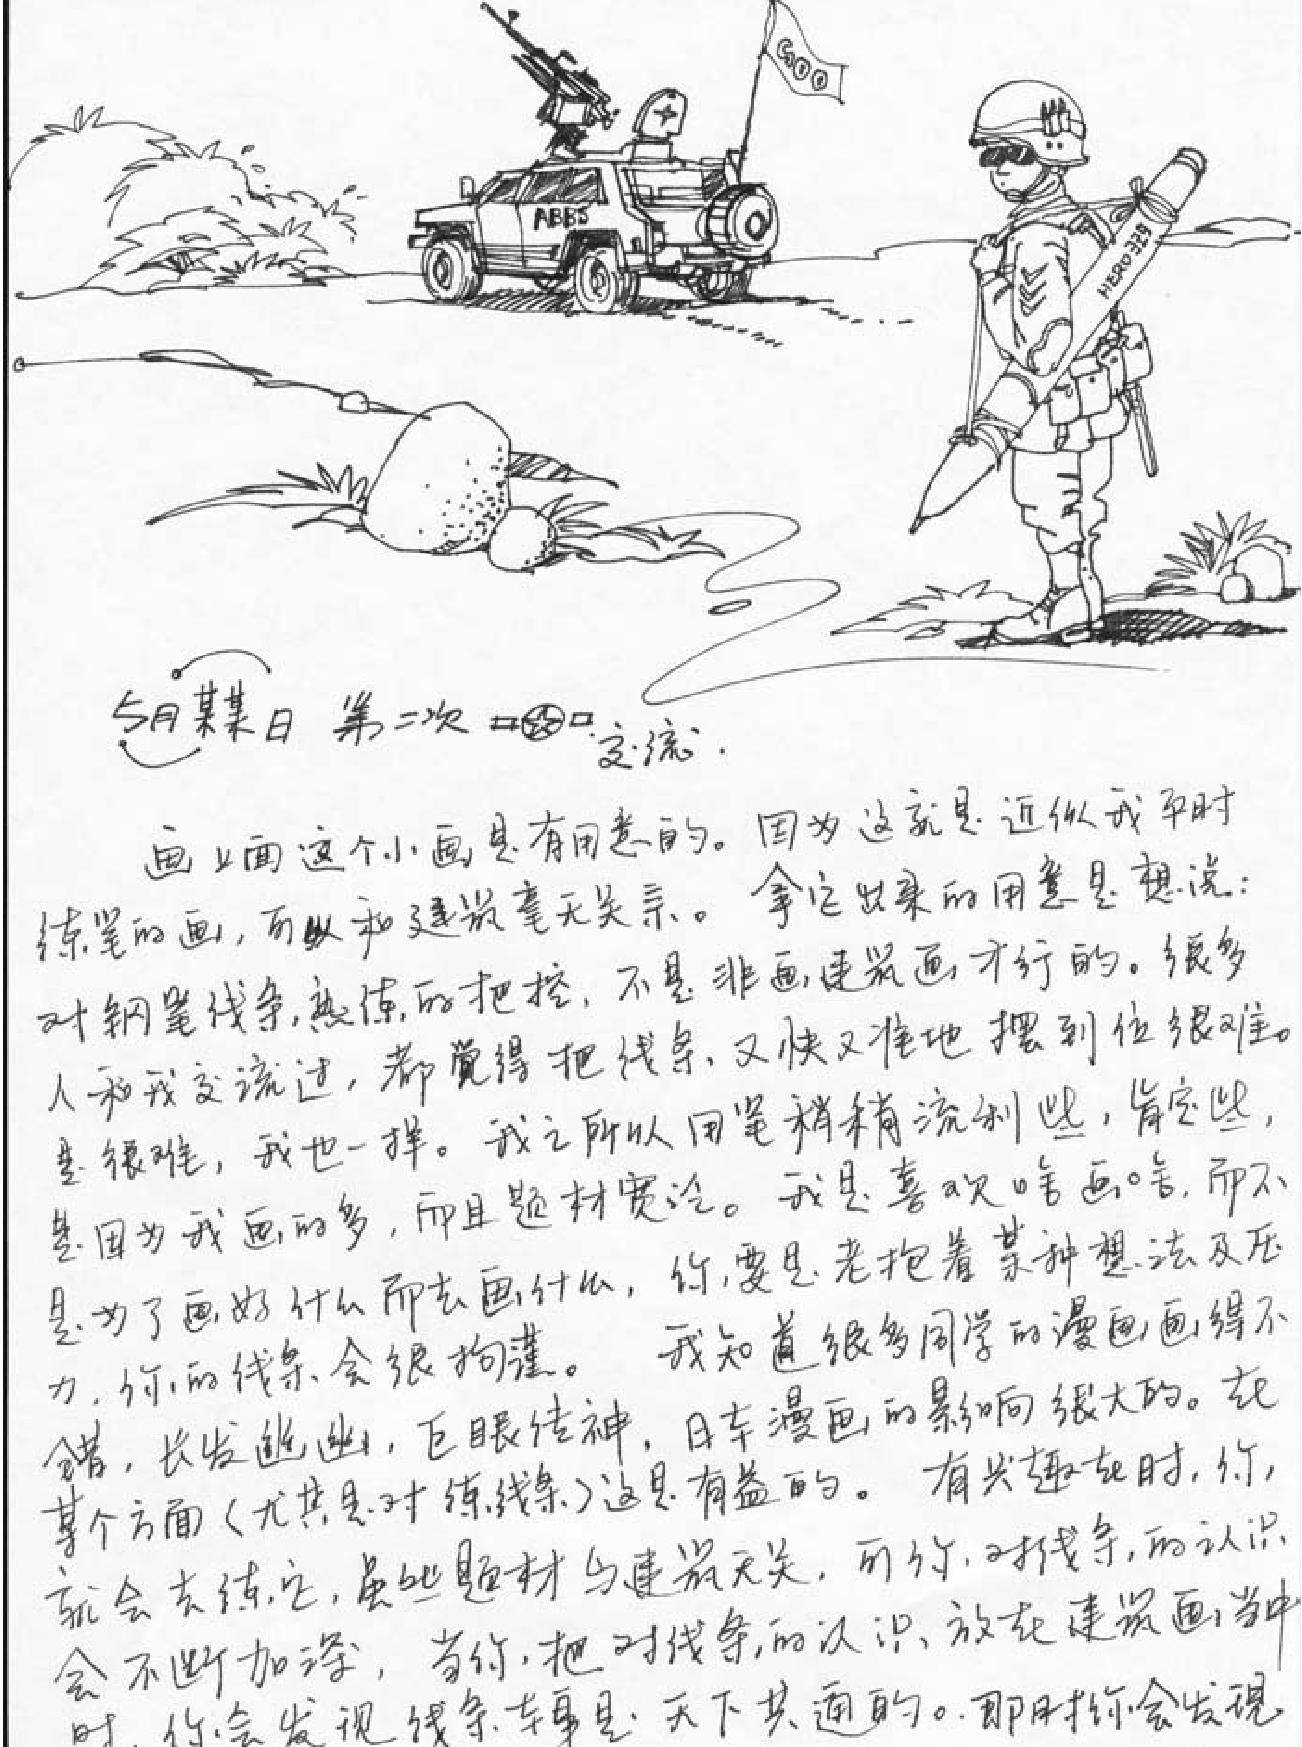 GOO
ABBS
HERO 329
5月某某日 第二次
交流.
画上面这个小画是有用意的。因为这就是近似我平时
练笔的画,可以和建筑毫无关系。拿它出来的用意是想说:
对钢笔线条,熟练的把控,不是非画建筑画才行的。很多
人和我交流过,都觉得把线条,又快又准地摆到位很难。
是很难,我也一样。我之所以用笔稍稍流利些,肯定些,
是因为我画的多,而且题材宽泛。我是喜欢啥画啥,而不
是为了画好什么而去画什么,你要是老抱着某种想法及压
力,你的线条会很拘谨。 我知道很多同学的漫画画得不
错,长发幽幽,巨眼传神,日本漫画的影响很大的。在
某个方面(尤其是对练线条)这是有益的。有兴趣在时,你,
就会去练它,虽然题材与建筑无关,可你对线条的认识
会不断加深,当你把对线条的认识放在建筑画当中
时,你会发现线条本事是天下共通的。即时你会发现